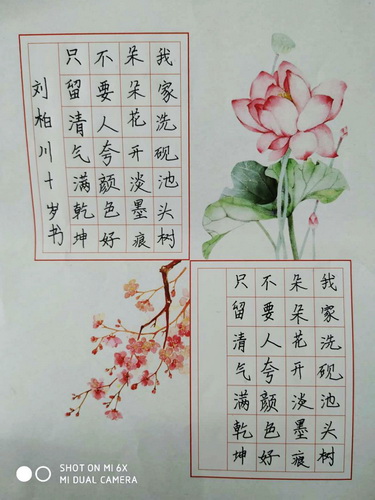 我家洗砚池头树
朵朵花开淡墨痕
不要人夸颜色好
只留清气满乾坤
刘柏川十岁书
我家洗砚池头树
朵朵花开淡墨痕
不要人夸颜色好
只留清气满乾坤
SHOT ON MI 6X
MI DUAL CAMERA